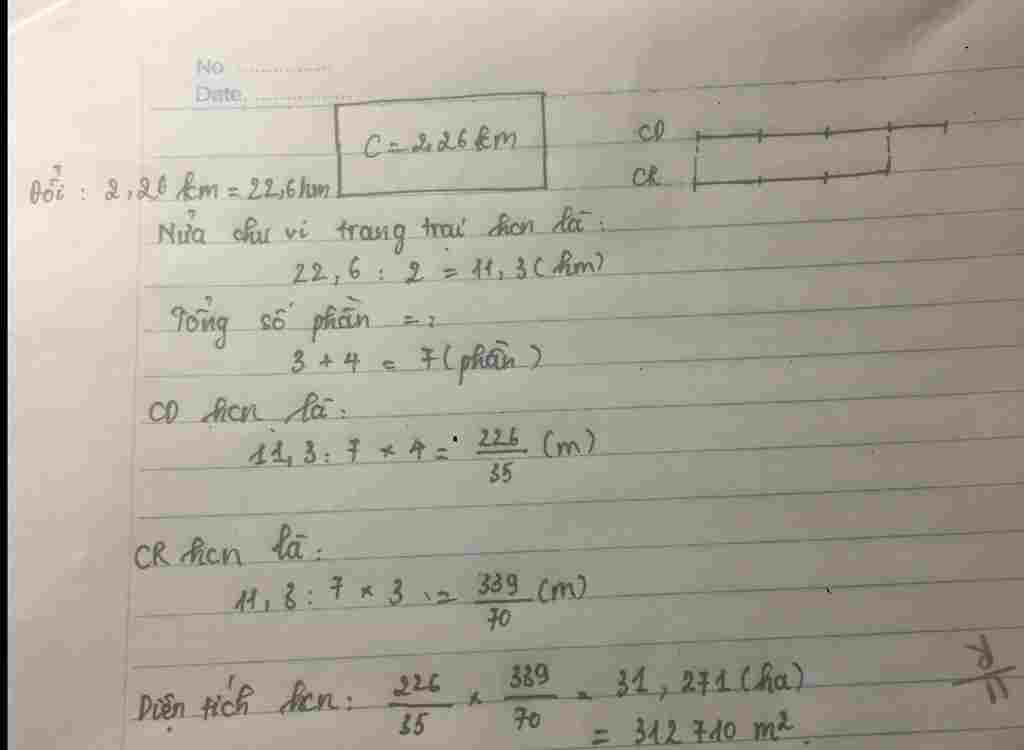 No ..............
Date ..............
C = 2,26 km
CD
CR
Đổi : 2,26 km = 22,6 hm
Nửa chu vi trang trại hcn là :
22,6 : 2 = 11,3 (hm)
Tổng số phần = :
3 + 4 = 7 (phần)
CD hcn là :
11,3 : 7 × 4 = 226/35 (m)
CR hcn là :
11,3 : 7 × 3 = 339/70 (m)
Diện tích hcn : 226/35 × 339/70 = 31,271 (ha)
= 312 710 m².